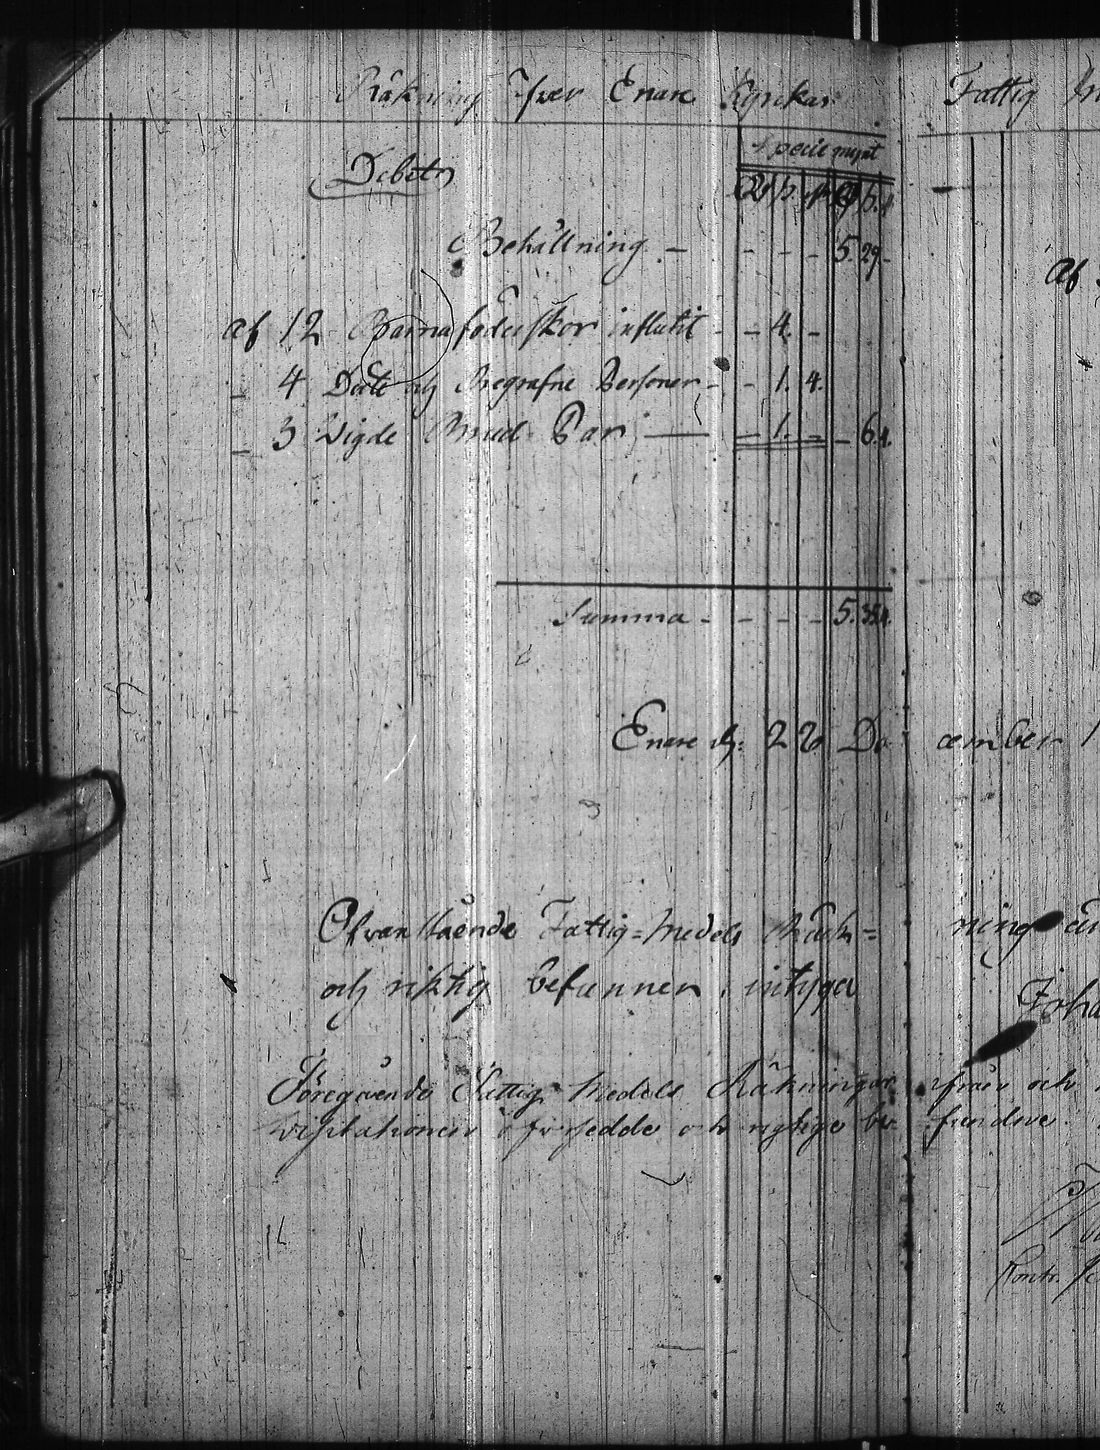 Räkning Öfver Enare Kyrkas Fattig
Specie mynt
Debet
Behållning - - - - 5. 29. -
Af
af 12 Barnaföderskor influtit - - 4. -
" 4 Döde och Begrafne Personer - - 1. 4.
" 3 Vigde Brud Par - - 1. - - 6. 4.
Summa - - - - 5. 35. 4.
Enare d. 22 De cember 1
Ofvanstående Fattig=Medels Räk= ning
och riktig befunnen, intyga
Föregående Fattig Medels Räkningar och
visitationen öfversedde och rigtige be fundne.
Kontr.